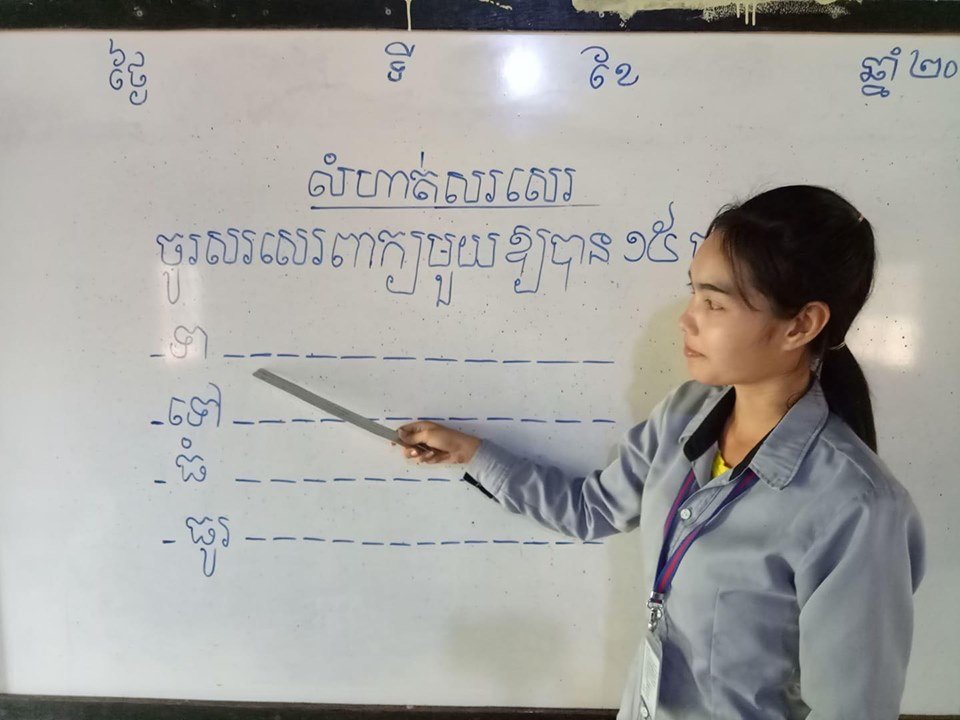 ថ្ងៃ ទី ខែ ឆ្នាំ ២០
លំហាត់សរសេរ
ចូរសរសេរពាក្យមួយឱ្យបាន ១៥
- ទា _ _ _ _ _ _ _ _ _ _ _ _ _
- ទៅ _ _ _ _ _ _ _ _ _ _ _ _ _
- ធំ _ _ _ _ _ _ _ _
- ធូរ _ _ _ _ _ _ _ _ _ _ _ _ _